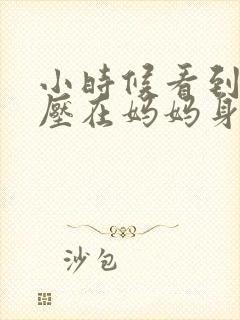 小時候看到
壓在媽媽身
沙包